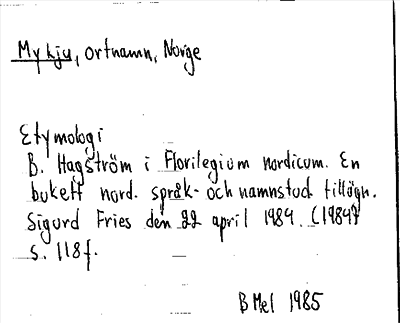 Mykju, ortnamn, Norge
Etymologi
B. Hagström i Florilegium nordicum. En
bukett nord. språk- och namnstud. tillägn.
Sigurd Fries den 22 april 1984. (1984)
s. 118f.
B Mel 1985